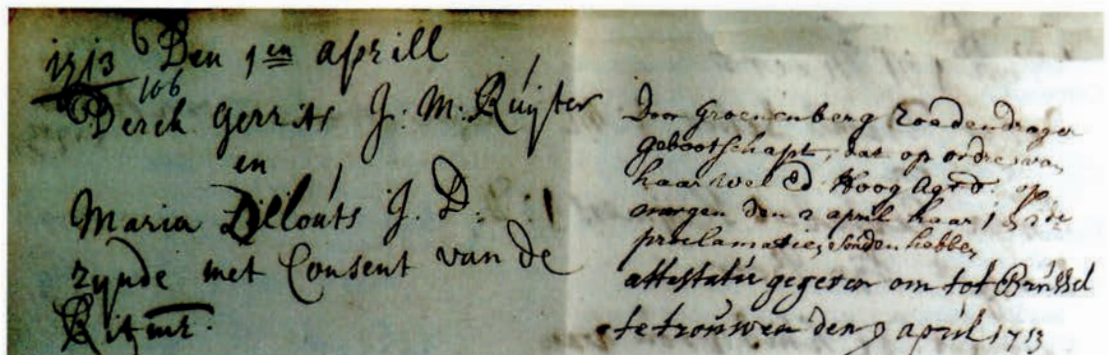 1713 Den 1en aprill
166
Derck Gerrits J: M: Ruÿter
en
Maria Zilloúts J. D:
zynde met Consent van de
Ritmr.
Door Groenenberg Roedendrager
gebootschapt, dat op ordre van
haar wel Ed Hoog Agtb. op
morgen den 2 april haar 1 &
proclamatie, sonden hebben
attestatie gegeven om tot Brússel
te troúwen den 9 april 1713